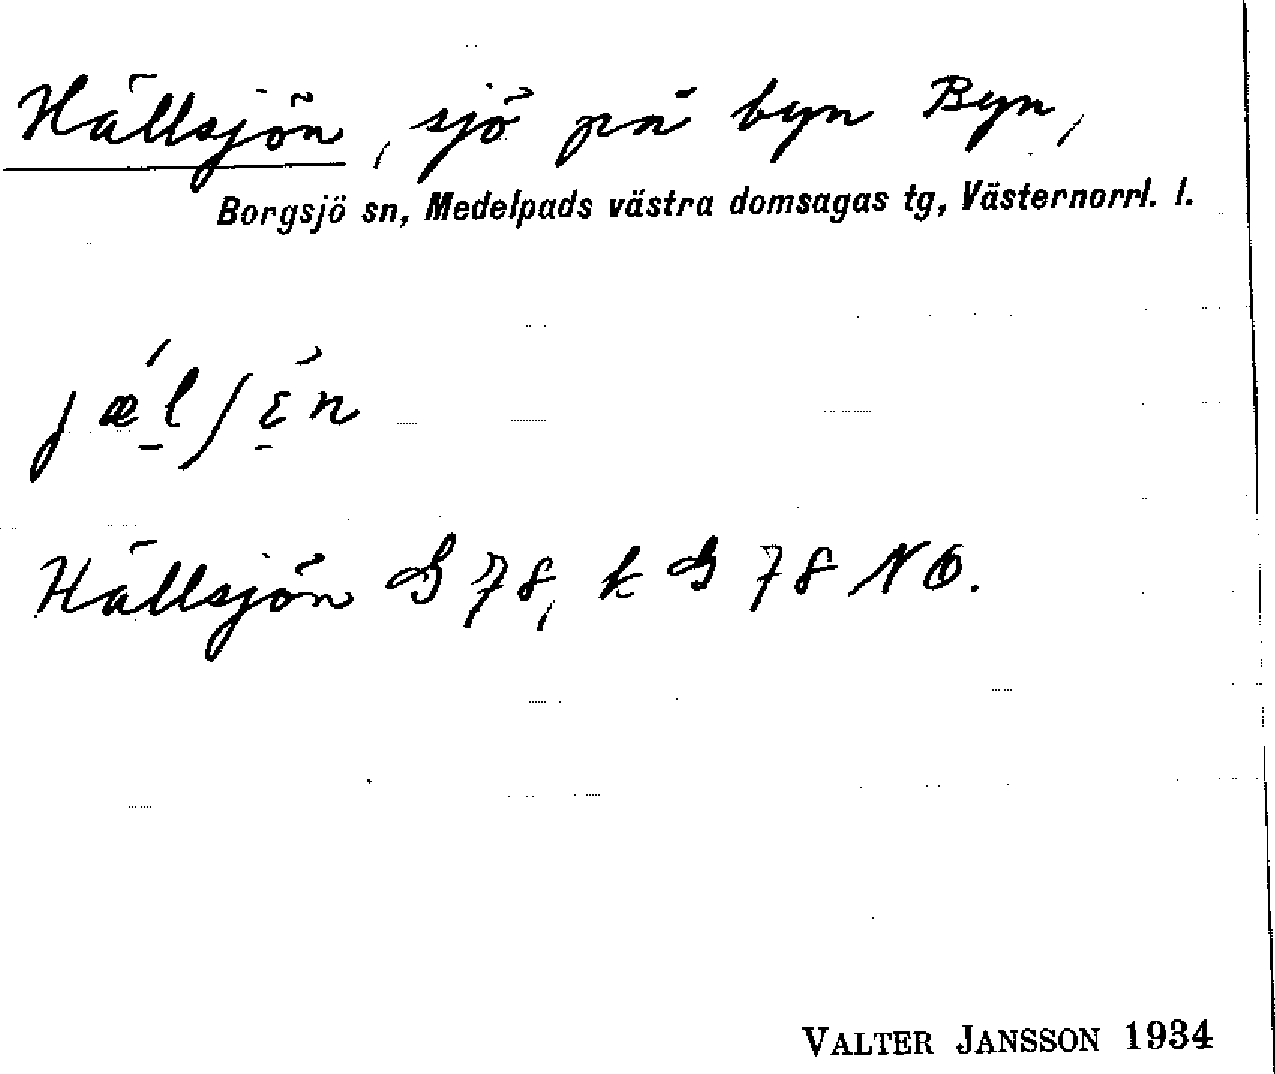 Hällsjön, sjö på byn Byn,
Borgsjö sn, Medelpads västra domsagas tg, Västernorrl. l.
jǽ̠lʃɛ̠̀n
Hällsjön G 78, k G 78 NO.
VALTER JANSSON 1934